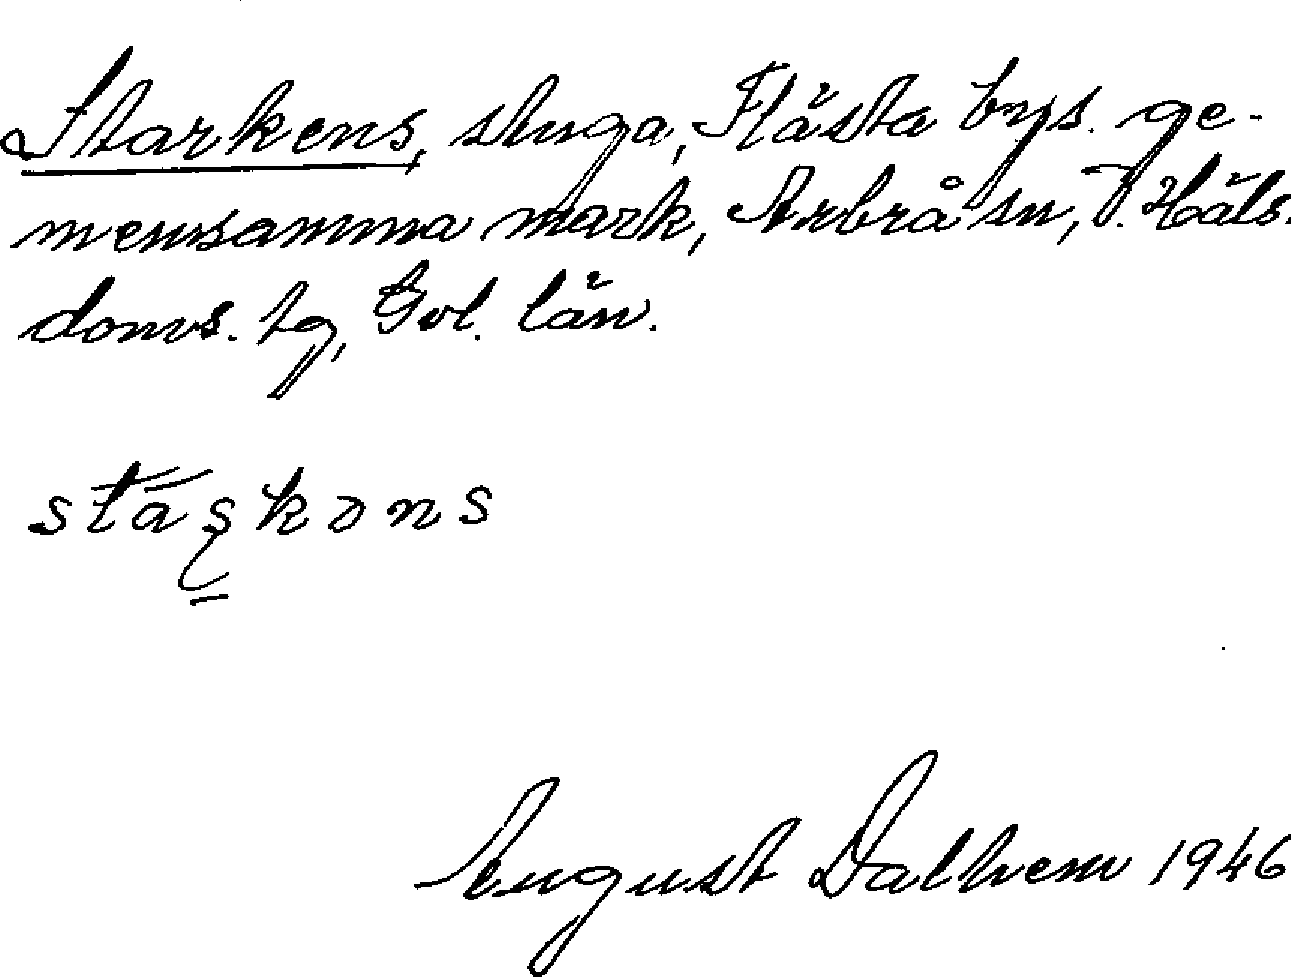 Starkens, stuga, Flästa bys. ge-
mensamma mark, Arbrå sn, V. Häls.
doms. tg, Gvl. län.
staʂkəns
August Dalhem 1946